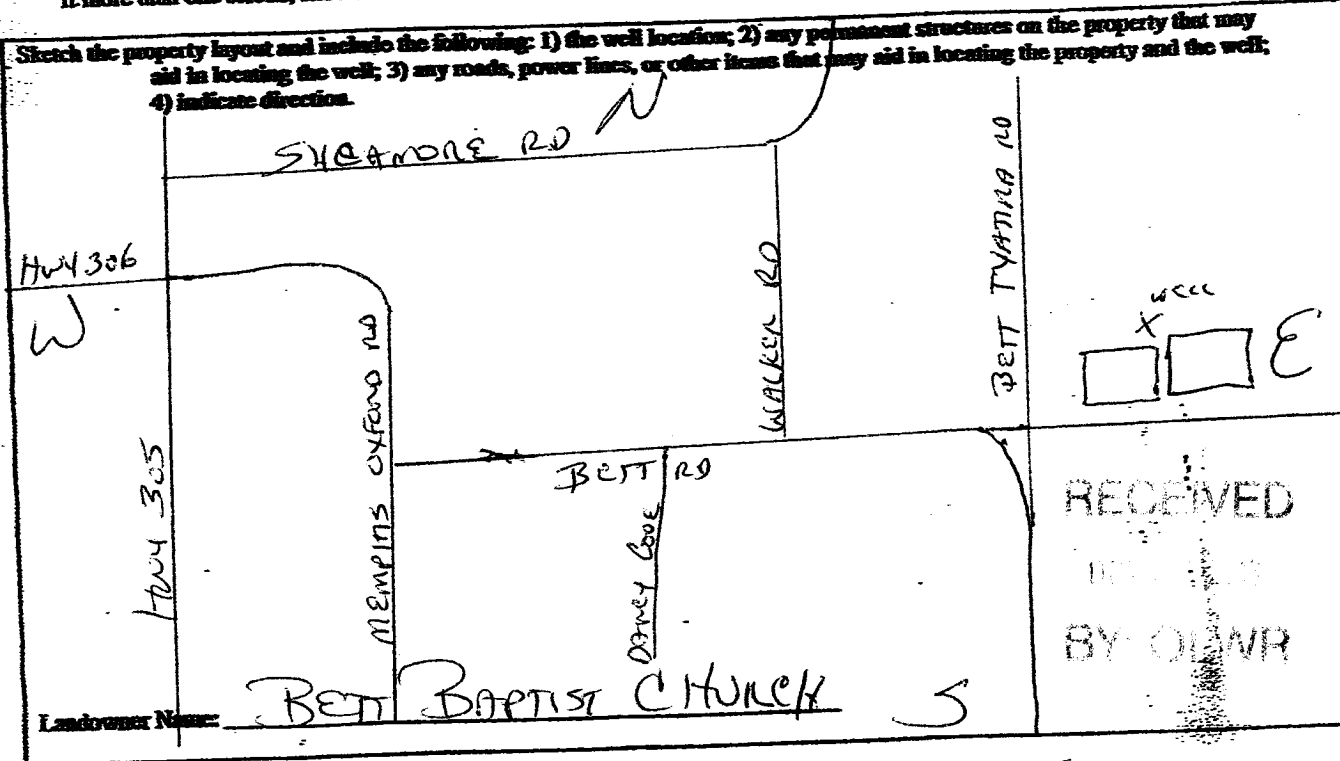 Sketch the property layout and include the following: 1) the well location; 2) any permanent structures on the property that may
aid in locating the well; 3) any roads, power lines, or other items that may aid in locating the property and the well;
4) indicate direction.
N
SYCAMORE RD
BETT TYATIRA RD
HWY 306
WALKER RD
WELL
X
W
E
MEMPHIS OXFORD RD
BETT RD
HWY 305
DANCY COVE
RECEIVED
BY OLWR
S
Landowner Name: BETT BAPTIST CHURCH